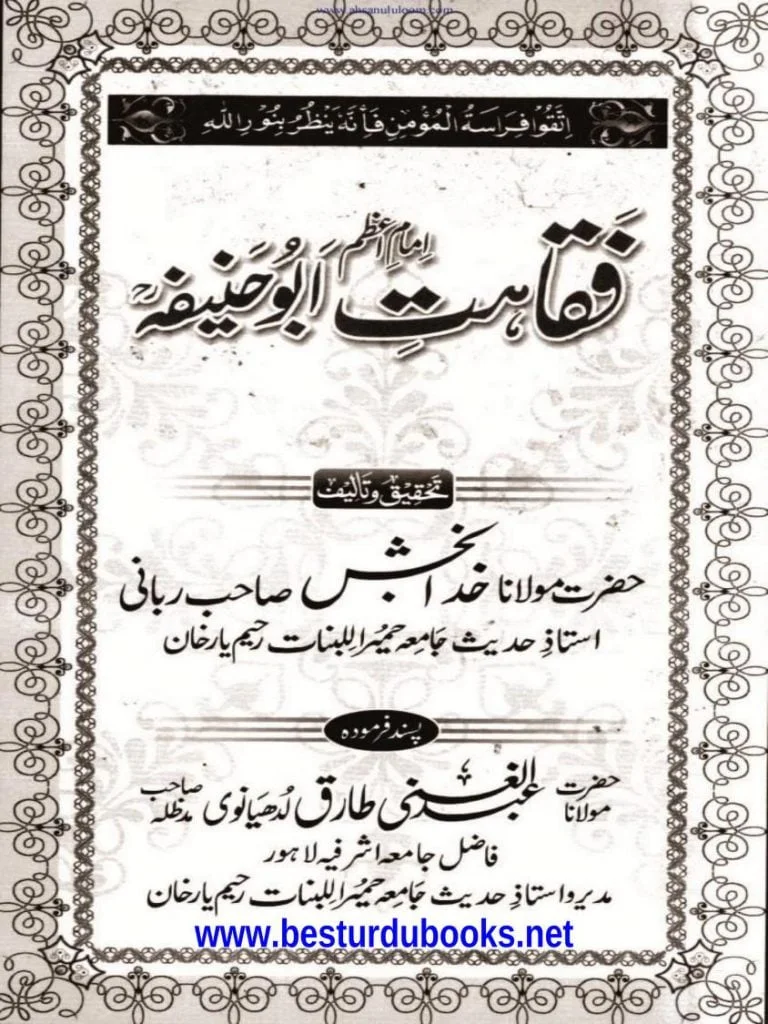 www.ahsanululoom.com
اِتَّقُوْا فِرَاسَةُ الْمُؤْمِنِ فَاِنَّهٗ یَنْظُرُ بِنُوْرِ اللهِ
فَقَاہتِ امامِ اعظم اَبُو حَنِیفہؒ
تحقیق و تالیف
حضرت مولانا خدا بخش صاحب ربانی
استاذِ حدیث جامعہ حمیرا للبنات رحیم یار خان
پسند فرمودہ
حضرت مولانا عبد الغنی طارق لدھیانوی صاحب مدظلہ
فاضل جامعہ اشرفیہ لاہور
مدیر و استاذِ حدیث جامعہ حمیرا للبنات رحیم یار خان
www.besturdubooks.net